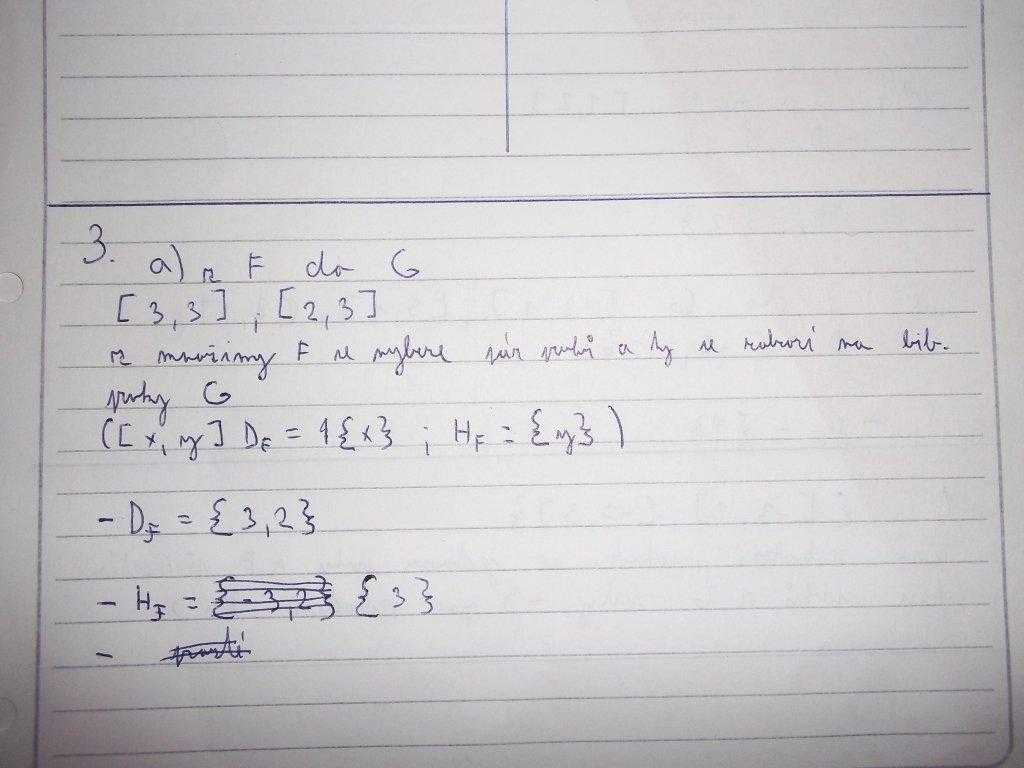 3. a) z F do G
[3,3] ; [2,3]
z množiny F se vybere pár prvků a ty se zobrazí na lib.
prvky G
([x, y] D_F = {x} ; H_F = {y})
- D_F = {3,2}
- H_F = {3}
-